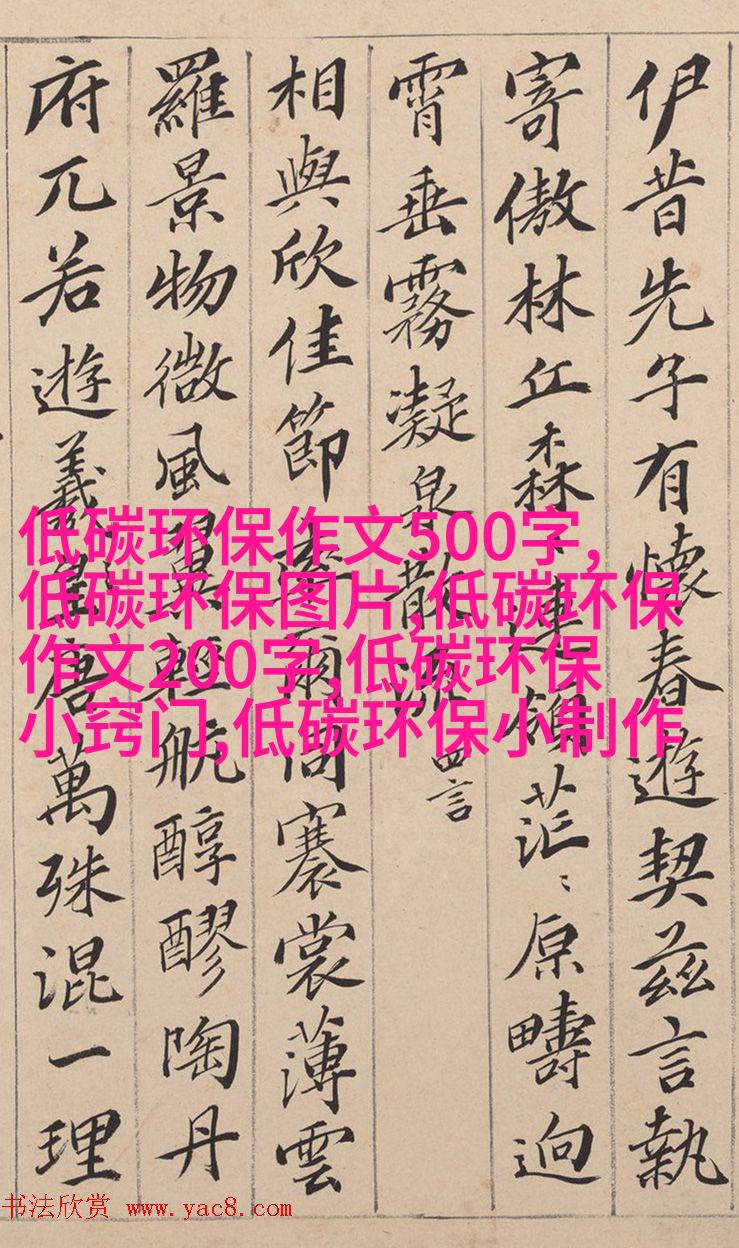 伊昔先子有懷春遊契茲言執
寄傲林丘森〻連領茫〻原疇迥
霄垂霧凝泉散流 四言
相與欣佳節率爾同褰裳薄雲
羅景物微風翼輕航醇醪陶丹
府兀若遊羲唐萬殊混一理
低碳环保作文500字,
低碳环保图片,低碳环保
作文200字,低碳环保
小窍门,低碳环保小制作
书法欣赏 www.yac8.com